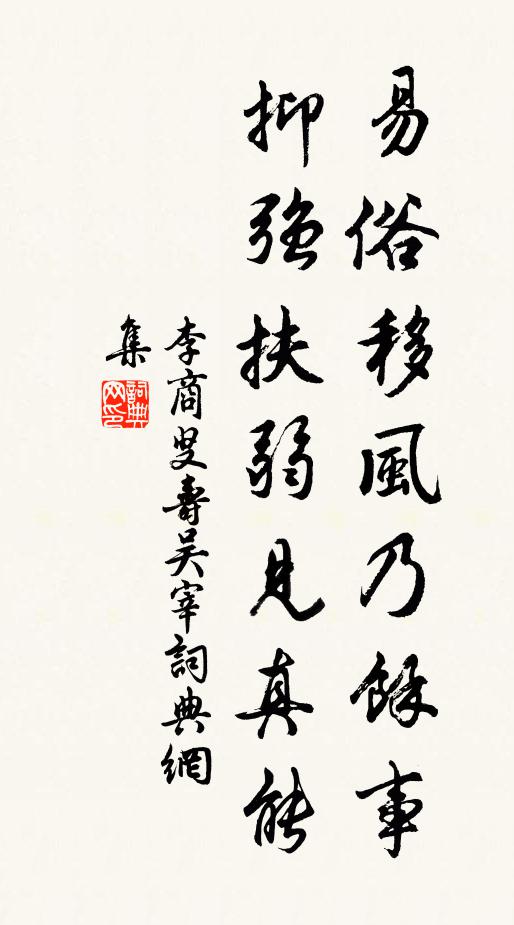 易俗移風乃餘事
抑強扶弱見真能
李商叟壽吳宰詞典網
集
詞典
网印